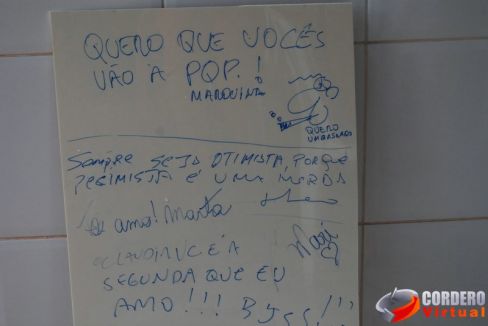 QUERO QUE VOCÊS
VÃO A PQP.!
MARQUINHO
QUERO
SEMPRE SEJA OTIMISTA, PORQUE
PESIMISTA É UMA MERDA
Te amo! Marta
É A
SEGUNDA QUE EU
AMO!!! BJSS!!!
CORDERO
Virtual